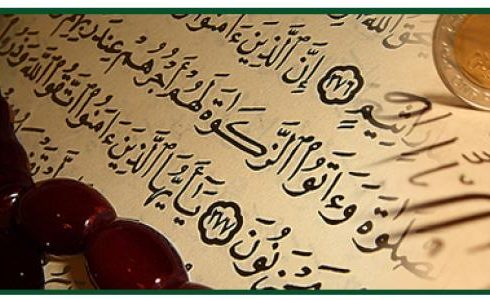 حَقُ ٱللَّهُ
أَثِيمٍ ٢٧٦ إِنَّ ٱلَّذِينَ ءَامَنُوا۟
صَّلَوٰةَ وَءَاتَوُا۟ ٱلزَّكَوٰةَ لَهُمْ أَجْرُهُمْ عِندَ رَبِّهِمْ
حْزَنُونَ ٢٧٧ يَٰٓأَيُّهَا ٱلَّذِينَ ءَامَنُوا۟ ٱتَّقُوا۟ ٱللَّهَ وَذَرُوا۟